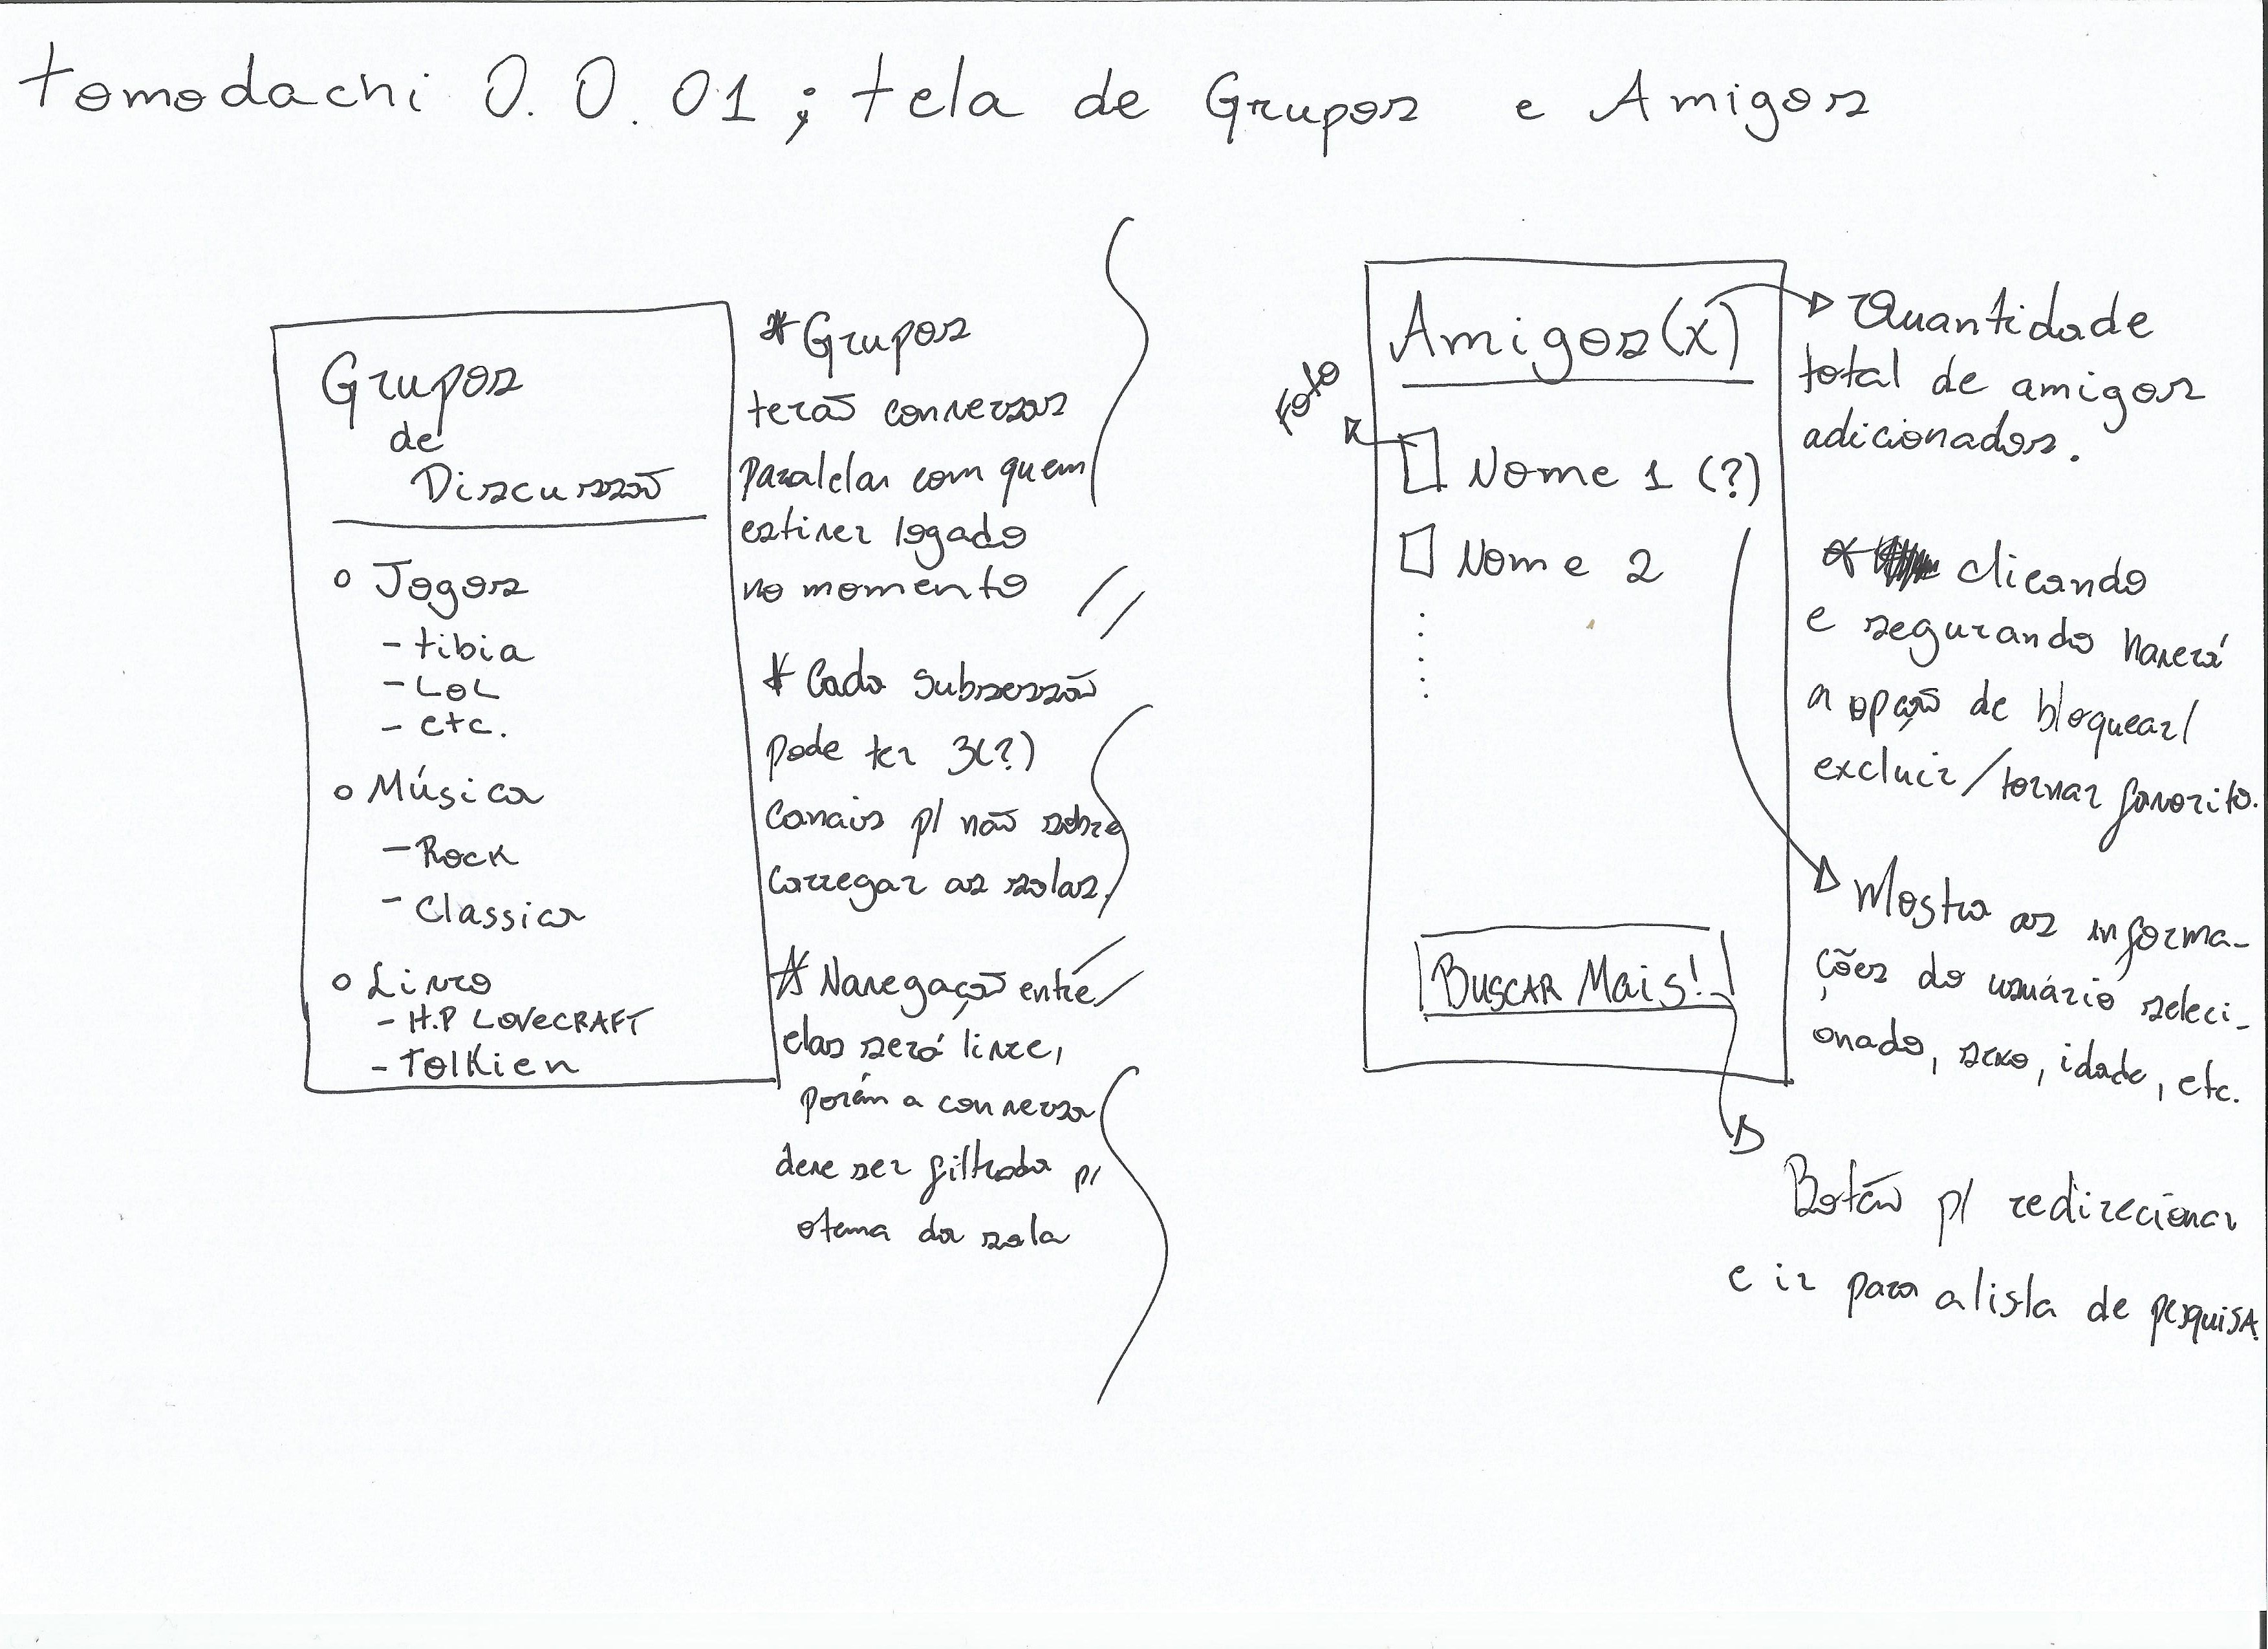 tomodachi 0.0.01; tela de Grupos e Amigos
Grupos
de
Discussão
o Jogos
- tibia
- LOL
- etc.
o Música
- Rock
- Classica
o Livro
- H.P LOVECRAFT
- Tolkien
* Grupos
terão conversas
paralelas com quem
estiver logado
no momento
* Cada subsessão
pode ter 3(?)
canais p/ não sobre
carregar as salas.
* Navegação entre
elas será livre,
porém a conversa
deve ser filtrada p/
o tema da sala
Amigos(x)
Foto
Nome 1 (?)
Nome 2
BUSCAR Mais!
Quantidade
total de amigos
adicionados.
* clicando
e segurando haverá
a opção de bloquear/
excluir/tornar favorito.
Mostra as informa-
ções do usuário seleci-
onado, sexo, idade, etc.
Botão p/ redirecionar
e ir para a lista de pesquisa.